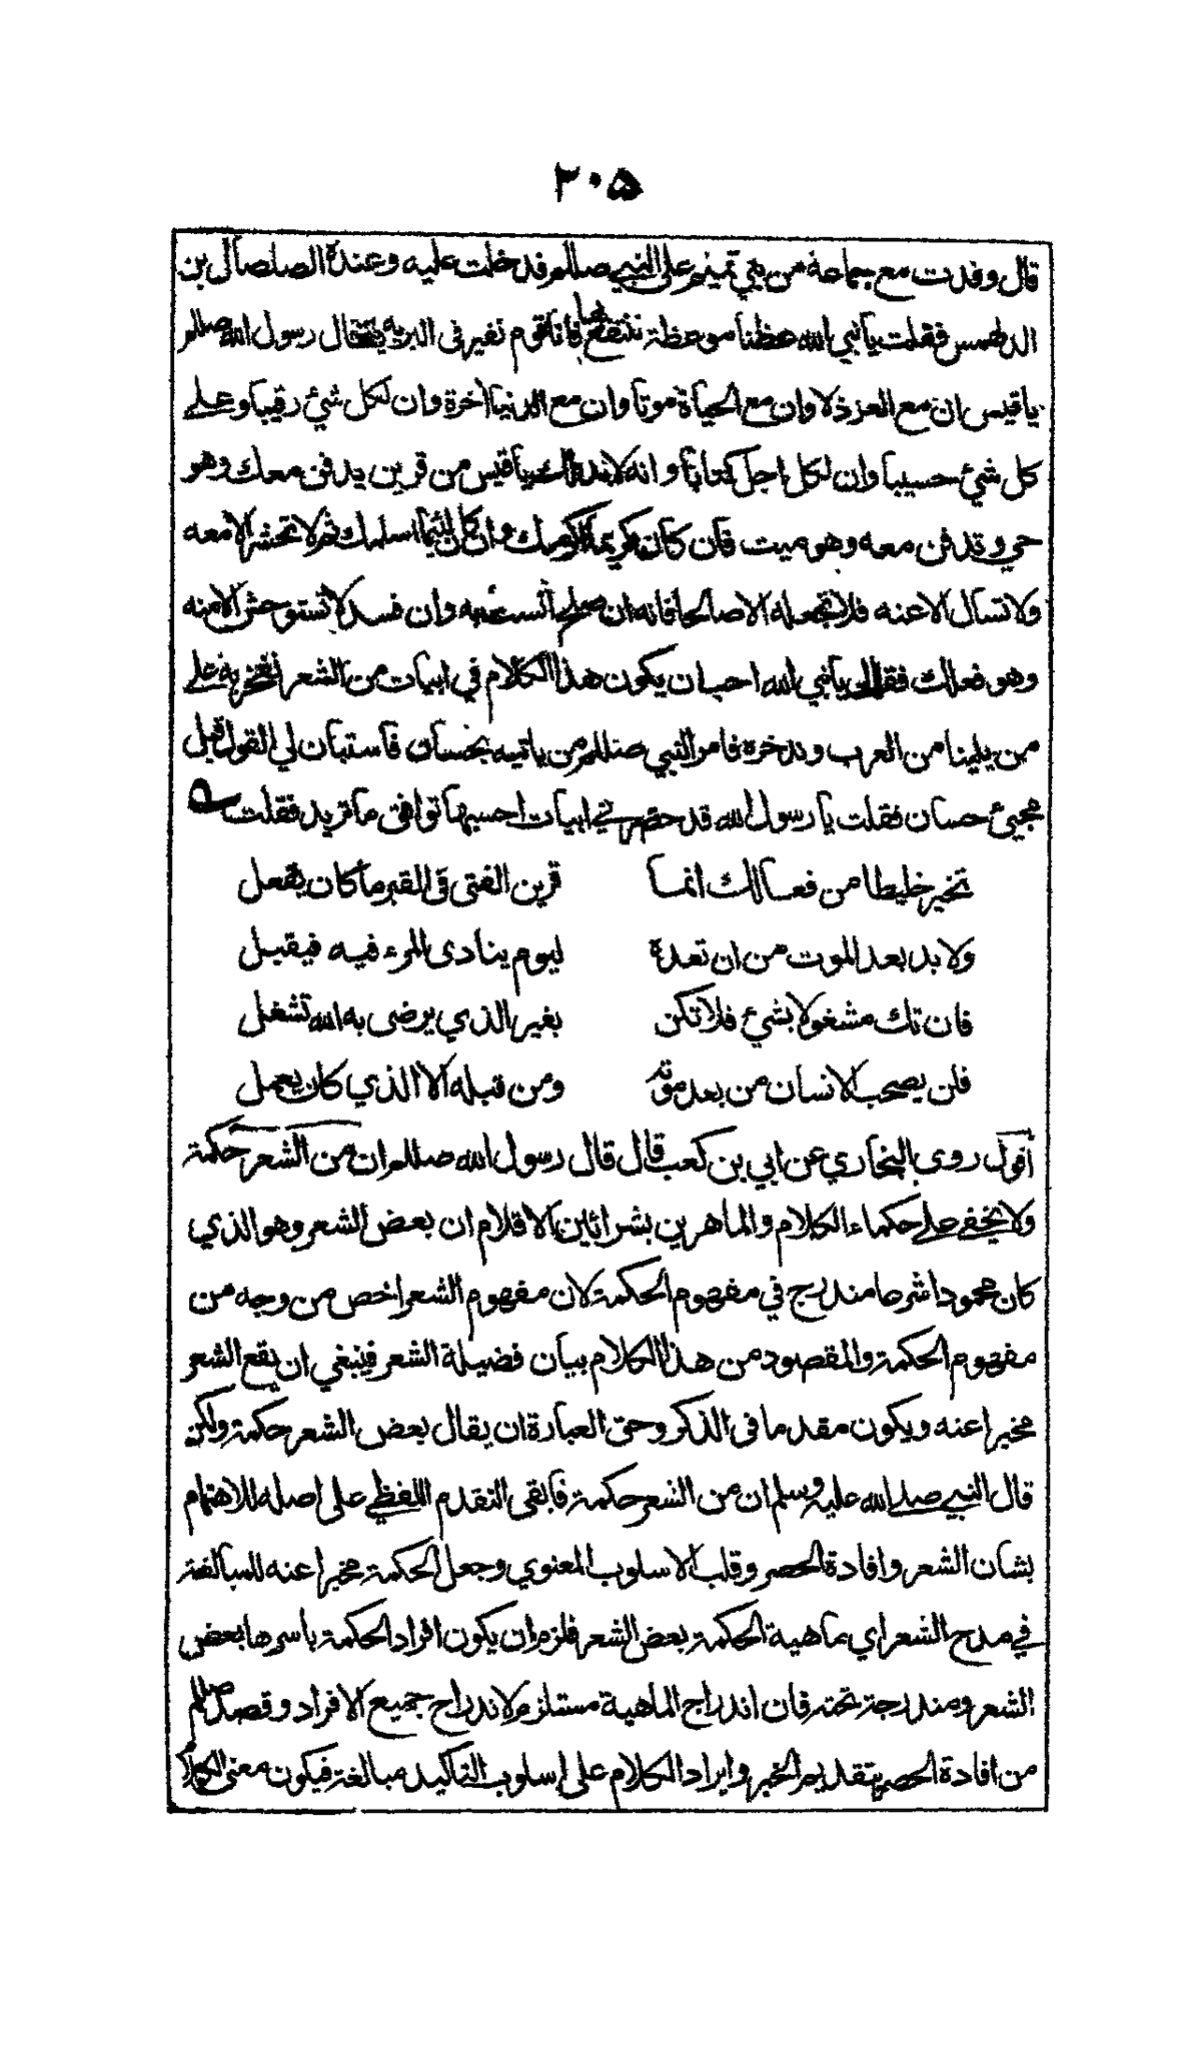 ٢٠٥
قال وفدت مع جماعة من بني تميم على النبي صللم فدخلت عليه وعنده الصلصال بن
الدلهمس فقلت يا نبي الله عظنا موعظة ننتفع بها فانا قوم نغير في البرية فقال رسول الله صللم
يا قيس ان مع العز ذلا وان مع الحياة موتا وان مع الدنيا اخرة وان لكل شيء رقيبا وعلى
كل شيء حسيبا وان لكل اجل كتابا وانه لا بد لك يا قيس من قرين يدفن معك وهو
حي وتدفن معه وهو ميت فان كان كريما اكرمك وان كان لئيما اسلمك ثم لا تحشر الا معه
ولا تسال الا عنه فلا تجعله الا صالحا فانه ان صلح انست به وان فسد لا تستوحش الا منه
وهو فعالك فقال يا نبي الله احب ان يكون هذا الكلام في ابيات من الشعر نفتخر به على
من يلينا من العرب وندخره فامر النبي صللم من ياتيه بحسان فاستبان لي القول قبل
مجيئ حسان فقلت يا رسول الله قد حضرني ابيات احسبها توافق ما تريد فقلت
تخير خليطا من فعالك انما قرين الفتى في القبر ما كان يفعل
ولا بد بعد الموت من ان تعده ليوم ينادى المرء فيه فيقبل
فان تك مشغولا بشيئ فلا تكن بغير الذي يرضى به الله تشغل
فلن يصحب الانسان من بعد موته ومن قبله الا الذي كان يعمل
اقول روى البخاري عن ابي بن كعب قال قال رسول الله صللم ان من الشعر حكمة
ولا يخفى على حكماء الكلام والماهرين بشرائين الاقلام ان بعض الشعر وهو الذي
كان محمودا شرعا مندرج في مفهوم الحكمة لان مفهوم الشعر اخص من وجه من
مفهوم الحكمة والمقصود من هذا الكلام بيان فضيلة الشعر فينبغي ان يقع الشعر
مخبرا عنه ويكون مقدما في الذكر وحق العبارة ان يقال بعض الشعر حكمة ولكن
قال النبي صلى الله عليه وسلم ان من الشعر حكمة فابقى التقدم اللفظي على اصله للاهتمام
بشان الشعر وافادة الحصر وقلب الاسلوب المعنوي وجعل الحكمة مخبرا عنه للمبالغة
في مدح الشعر اي ماهية الحكمة بعض الشعر فلزم ان يكون افراد الحكمة باسرها بعض
الشعر ومندرجة تحته فان اندراج الماهية مستلزم لاندراج جميع الافراد وقصد صللم
من افادة الحصر بتقديم الخبر وايراد الكلام على اسلوب التاكيد مبالغة فيكون معنى الكلام